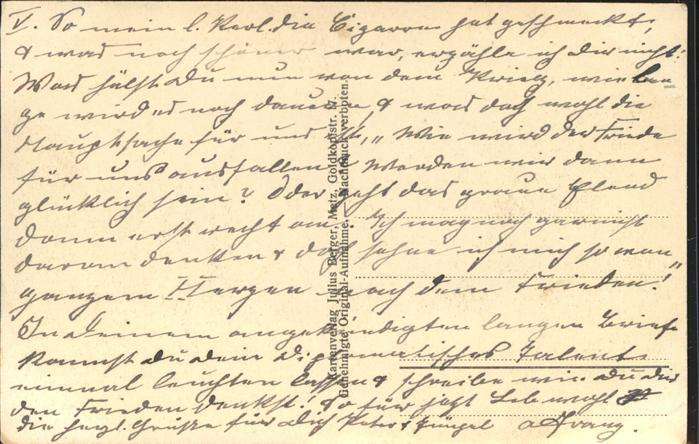 V. So mein l. Karl. die Cigarren hat geschmeckt,
& was noch schöner war, erzähle ich Dir nicht.
Was hälst Du nun von dem Krieg, wie lan
ge wird es noch dauern, & was doch wohl die
Hauptsache für uns ist, „Wie wird der Friede
für uns ausfallen & werden wir dann
glücklich sein? Oder geht das graue Elend
dann erst recht an? Ich mag noch gar nicht
daran denken & doch sehne ich mich so von
ganzem Herzen nach dem Frieden!"
In Deinem angekündigten langen Briefe
kannst Du Dein diplomatisches Talent
einmal leuchten lassen & schreibe mir wie Du Dir
den Frieden denkst! So für jetzt Leb wohl
die herzl. Grüße für Dich Peter & Füngel a Franz.
Kartenverlag Julius Berger, Metz, Goldkopfstr. 17.
Genehmigte Original-Aufnahme. — Nachdruck verboten.